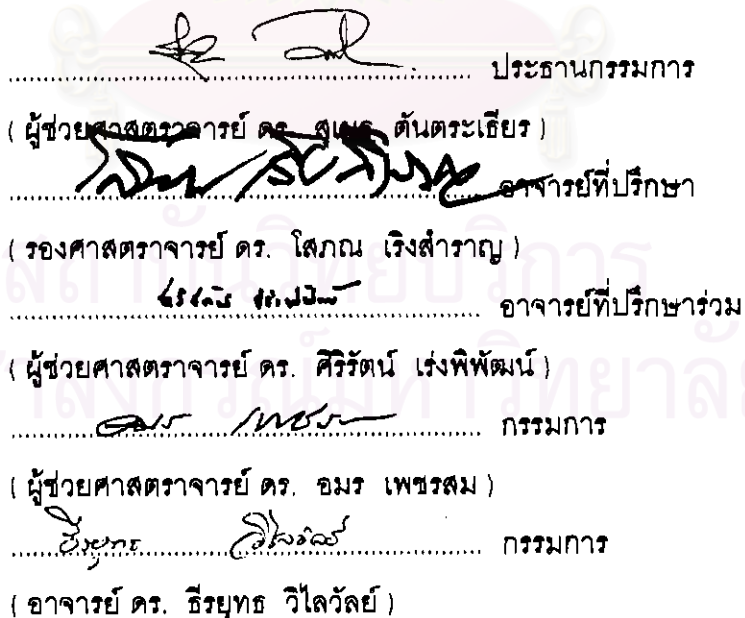 ประธานกรรมการ
( ผู้ช่วยศาสตราจารย์ ดร. สุเมธ ตันตระเธียร )
อาจารย์ที่ปรึกษา
( รองศาสตราจารย์ ดร. โสภณ เริงสำราญ )
อาจารย์ที่ปรึกษาร่วม
( ผู้ช่วยศาสตราจารย์ ดร. ศิริรัตน์ เร่งพิพัฒน์ )
กรรมการ
( ผู้ช่วยศาสตราจารย์ ดร. อมร เพชรสม )
ธีรยุทธ วิไลวัลย์ กรรมการ
( อาจารย์ ดร. ธีรยุทธ วิไลวัลย์ )